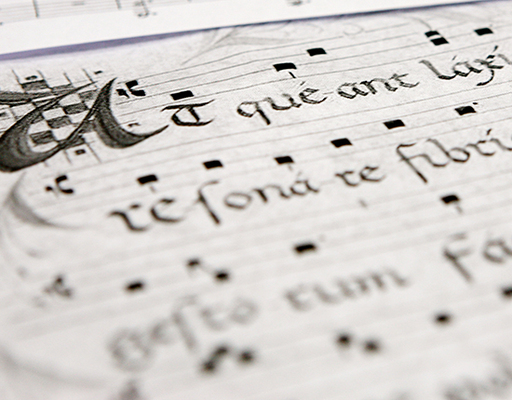 UT qué-ant láxi
re soná-re fibrí
gestó-rum Fá